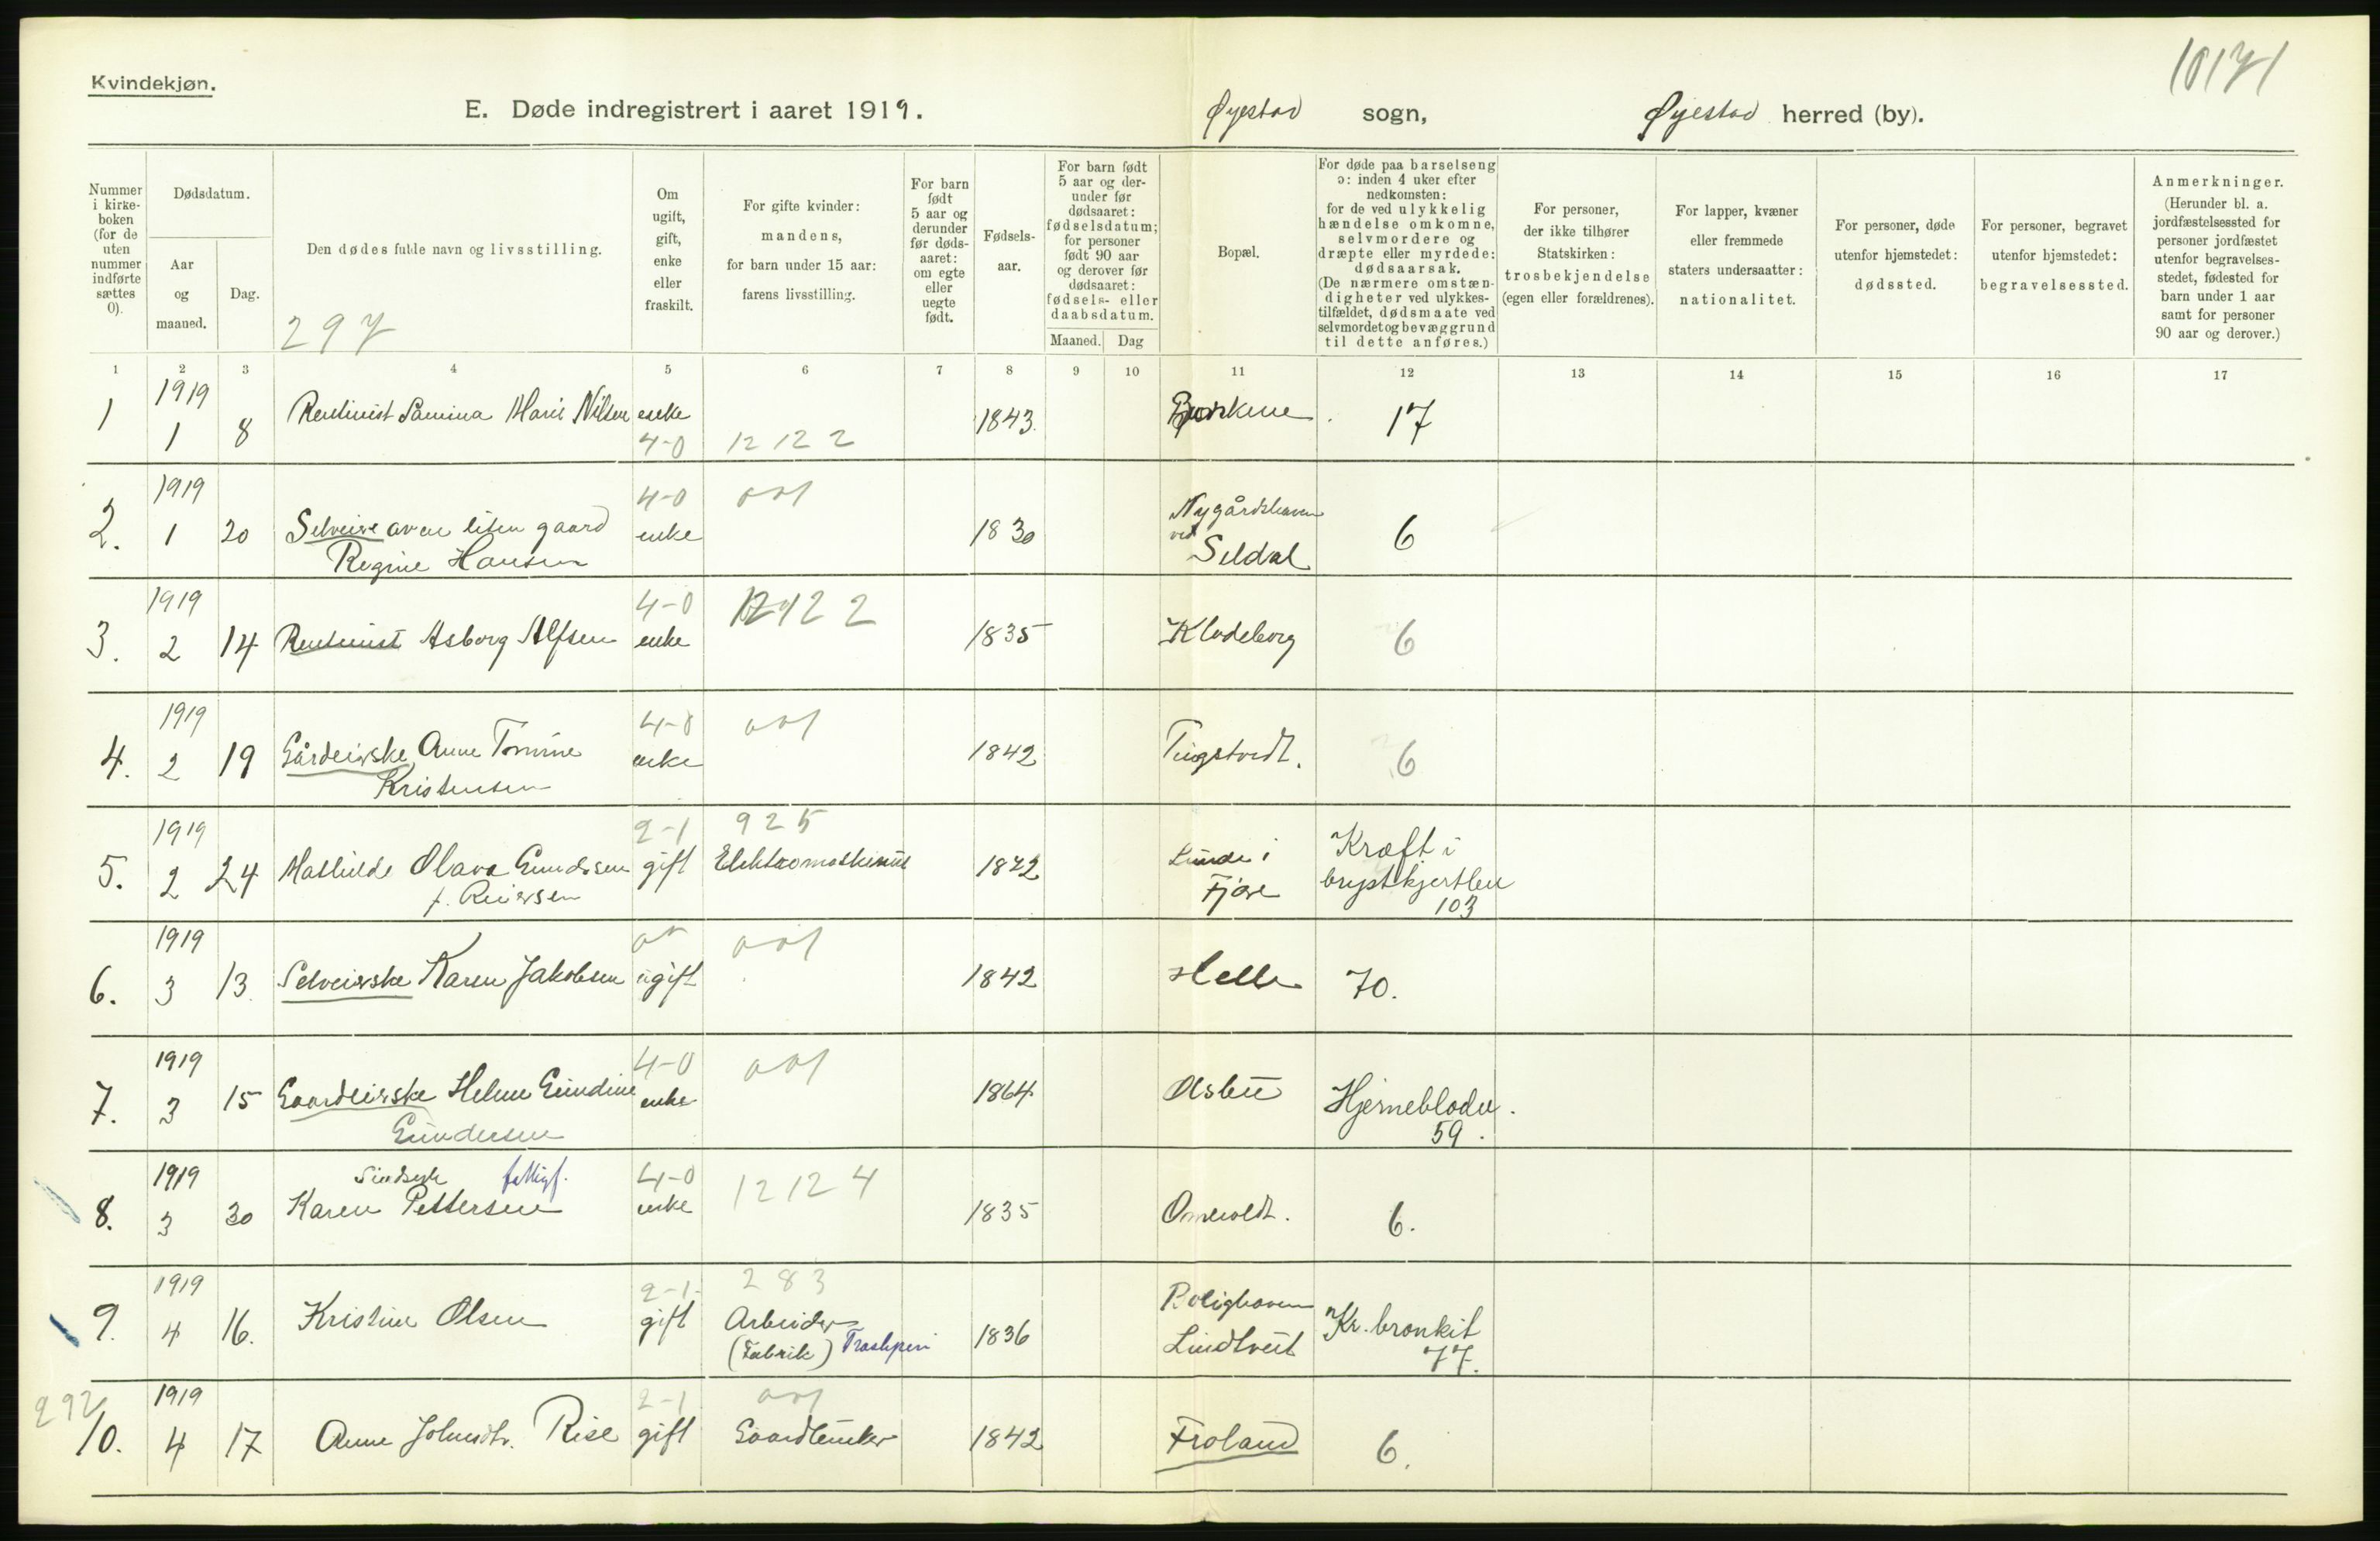 Kvindekjøn.
10171
E. Døde indregistrert i aaret 1919.
Øyestad sogn,
Øyestad herred (by).
Nummer i kirkeboken (for de uten nummer indførte sættes 0).
Dødsdatum.
Aar og maaned.
Dag.
Den dødes fulde navn og livsstilling.
297
Om ugift, gift, enke eller fraskilt.
For gifte kvinder: mandens, for barn under 15 aar: farens livsstilling.
For barn født 5 aar og derunder før dødsaaret: om egte eller uegte født.
Fødselsaar.
For barn født 5 aar og derunder før dødsaaret: fødselsdatum; for personer født 90 aar og derover før dødsaaret: fødsels- eller daabsdatum.
Maaned. Dag
Bopæl.
For døde paa barselseng ɔ: inden 4 uker efter nedkomsten: for de ved ulykkelig hændelse omkomne, selvmordere og dræpte eller myrdede: dødsaarsak. (De nærmere omstændigheter ved ulykkestilfældet, dødsmaate ved selvmordet og bevæggrund til dette anføres.)
For personer, der ikke tilhører Statskirken: trosbekjendelse (egen eller forældrenes).
For lapper, kvæner eller fremmede staters undersaatter: nationalitet.
For personer, døde utenfor hjemstedet: dødssted.
For personer, begravet utenfor hjemstedet: begravelsessted.
Anmerkninger. (Herunder bl. a. jordfæstelsessted for personer jordfæstet utenfor begravelsesstedet, fødested for barn under 1 aar samt for personer 90 aar og derover.)
1 2 3 4 5 6 7 8 9 10 11 12 13 14 15 16 17
1919
1 1 8 Rentenist Marie Nilsen enke 1843 17
4-0 12 12 2
1919 4-0 001
2. 1 20 Selveier av en liten gaard enke 1830 Nygårdshaven 6
Regine Hansen ved Seldal
1919 4-0 12 12 2
3. 2 14 Rentenist Asborg Alfsen enke 1835 Klodeborg 6
1919 4-0 001
4. 2 19 Gårdeierske Anne Tomine enke 1842 Tingstvedt. 6
Kristensen
1919 2-1 925
5. 2 24 Mathilde Olava Gundersen gift Elektromaskinist 1872 Lunde i Kræft i
f. Reiersen Fjære brystkjertlen
103
1919 001
6. 3 13 Selveierske Karen Jakobsen ugift 1842 Helle 70.
1919 4-0 001
7. 3 15 Gaardeierske Helene Gundine enke 1864 Asbu Hjerneblodn.
Gundersen 59.
1919 Sindsyk fattigf. 4-0 12 12 4
8. 3 30 Karen Pettersen enke 1835 Omholdt. 6.
1919 2-1 283
9. 4 16. Kristine Olsen gift Arbeider 1836 Rolighaven Kr. bronkit
(Fabrik) Træsliperi Lindtveit 77.
292 1919 2-1 001
10. 4 17 Anne Johnsdtr. Rise gift Gaardbruker 1842 Froland 6.